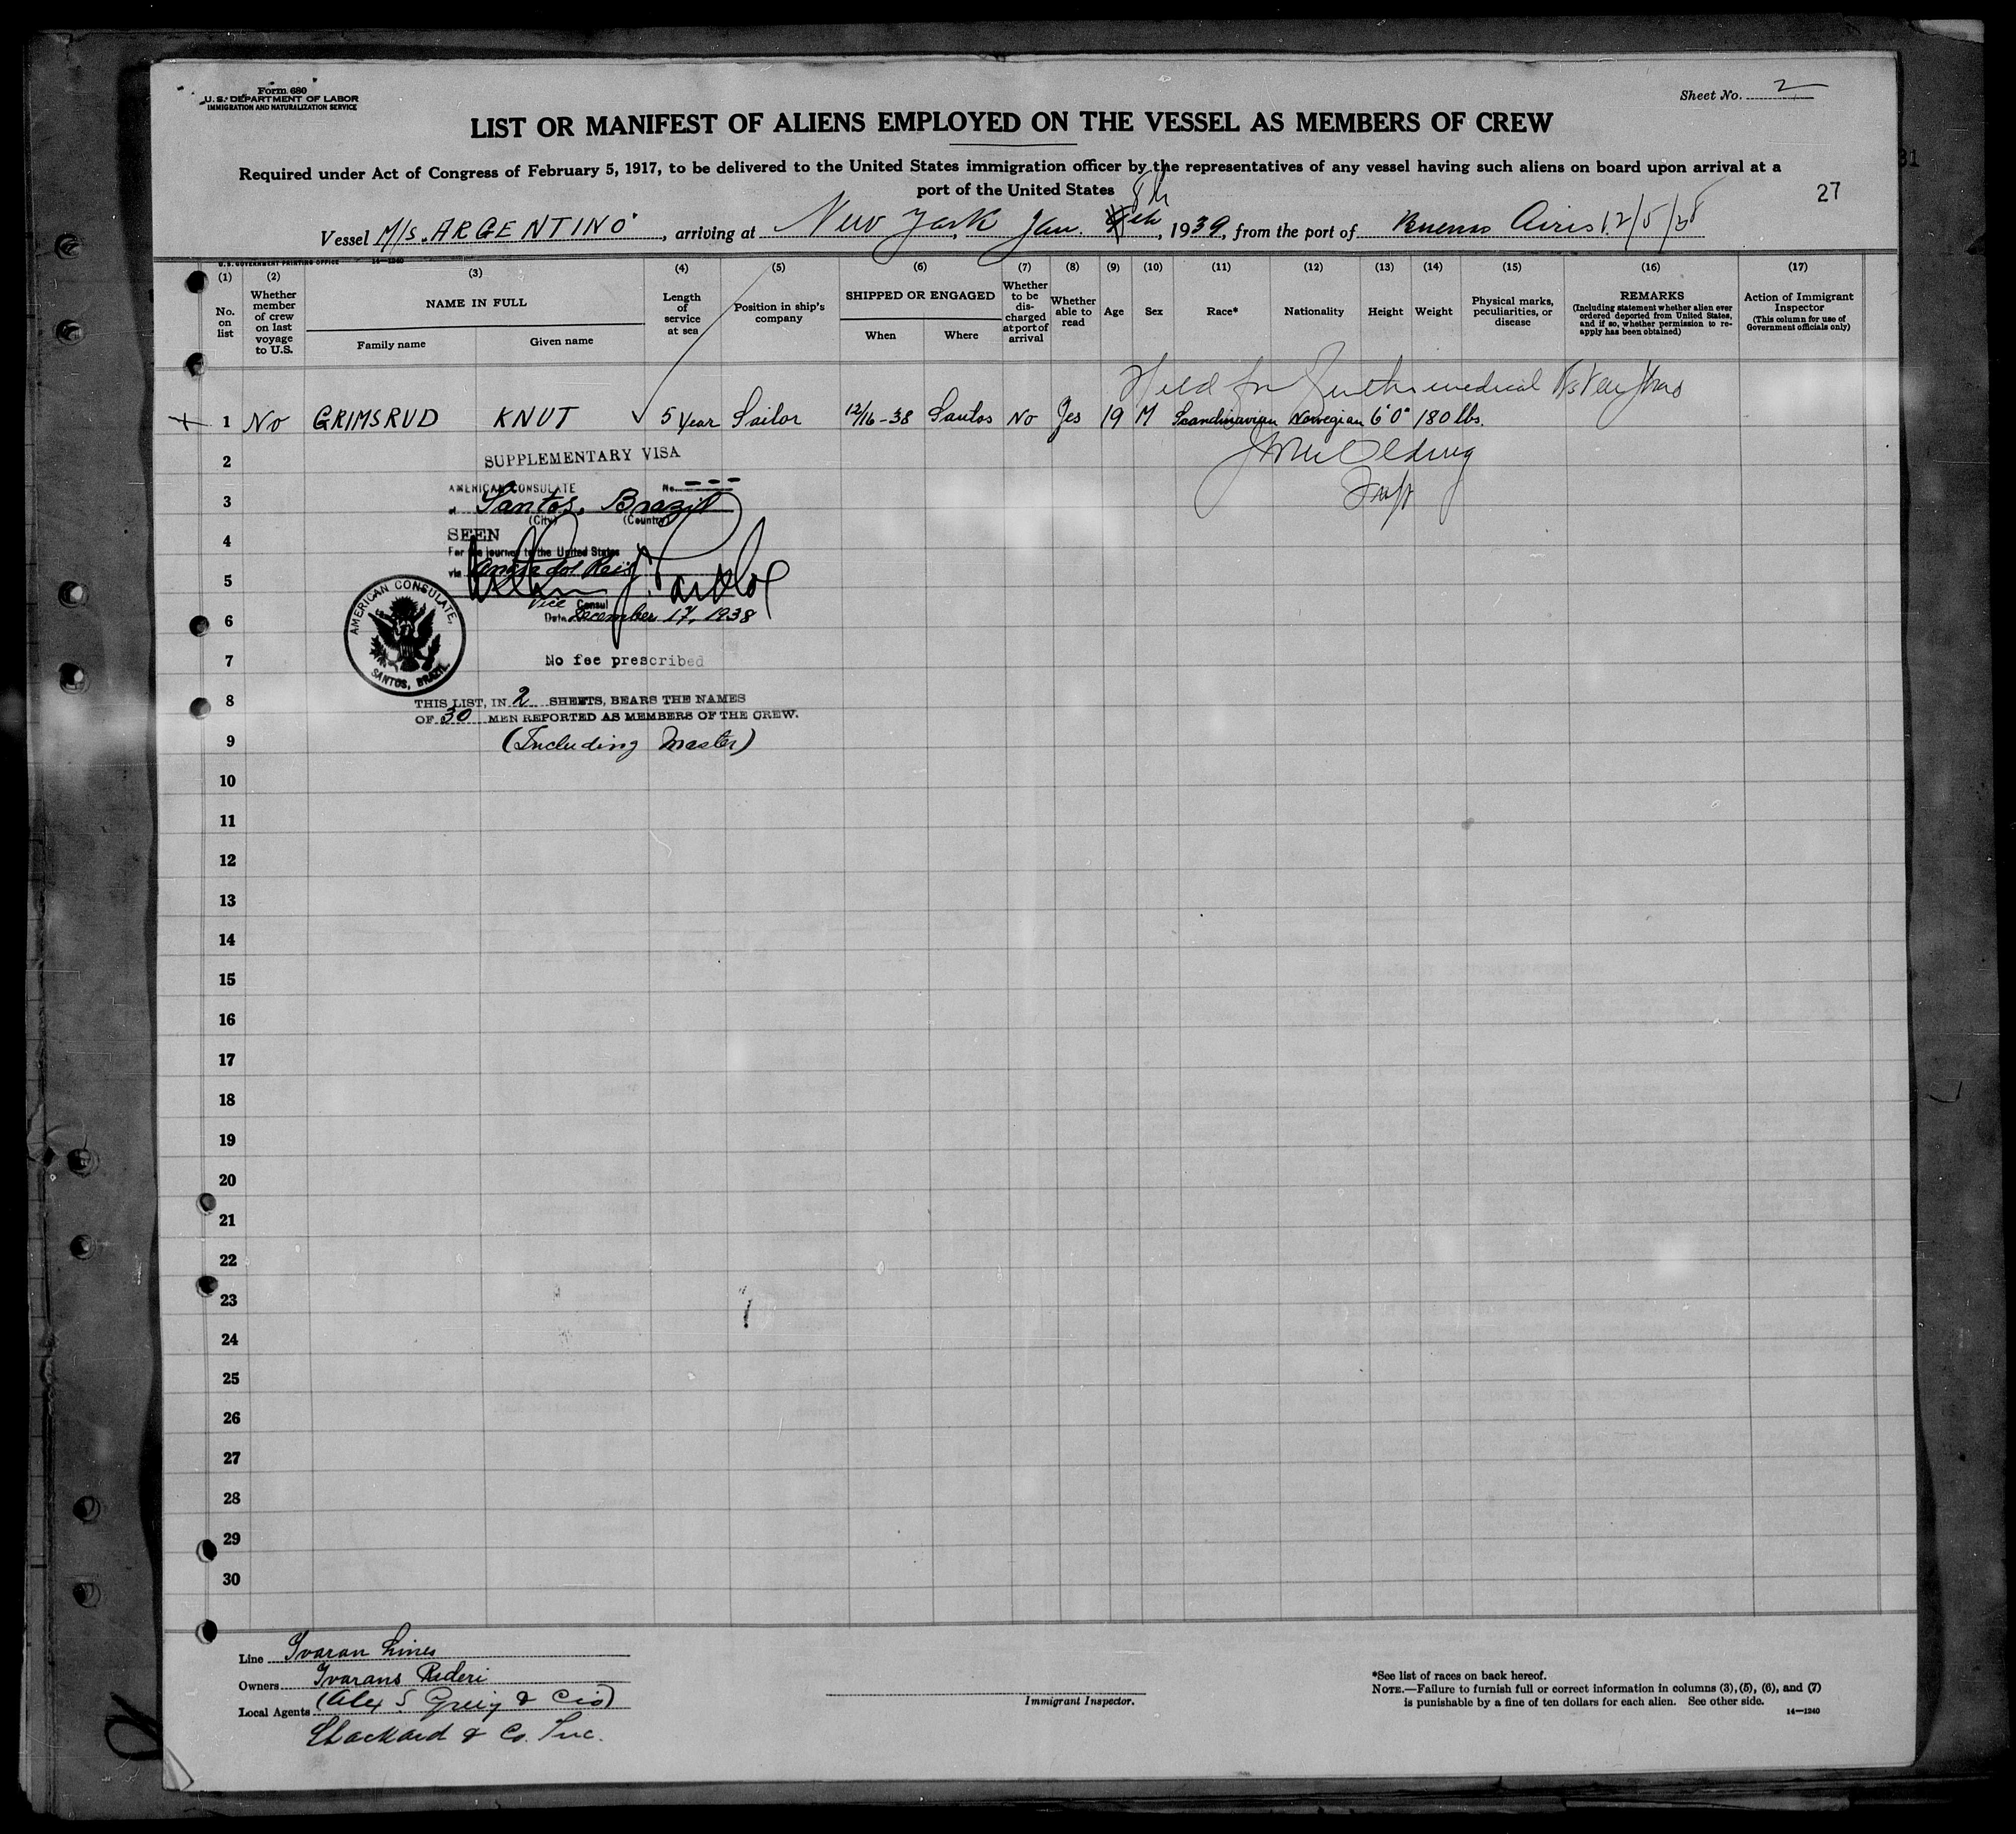 Form 680
U.S. DEPARTMENT OF LABOR
IMMIGRATION AND NATURALIZATION SERVICE
Sheet No. 2
LIST OR MANIFEST OF ALIENS EMPLOYED ON THE VESSEL AS MEMBERS OF CREW
Required under Act of Congress of February 5, 1917, to be delivered to the United States immigration officer by the representatives of any vessel having such aliens on board upon arrival at a
port of the United States
27
31
8th
Vessel M/S. ARGENTINO, arriving at New York Jan. 1939, from the port of Buenos Aires 12/5/38
U.S. GOVERNMENT PRINTING OFFICE 14—1240
(1) (2) (3) (4) (5) (6) (7) (8) (9) (10) (11) (12) (13) (14) (15) (16) (17)
No. on list
Whether member of crew on last voyage to U.S.
NAME IN FULL
Family name
Given name
Length of service at sea
Position in ship's company
SHIPPED OR ENGAGED
When
Where
Whether to be discharged at port of arrival
Whether able to read
Age
Sex
Race*
Nationality
Height
Weight
Physical marks, peculiarities, or disease
REMARKS
(Including statement whether alien ever ordered deported from United States, and if so, whether permission to reapply has been obtained)
Action of Immigrant Inspector
(This column for use of Government officials only)
Held for further medical
+ 1 No GRIMSRUD KNUT ✓ 5 Year Sailor 12/16-38 Santos No Yes 19 M Scandinavian Norwegian 6'0" 180 lbs.
2
SUPPLEMENTARY VISA
AMERICAN CONSULATE No. - - -
3
at Santos, Brazil
(City) (Country)
4
SEEN
For the journey to the United States
5
via Angra dos Reis
Vice Consul
6
Date December 17, 1938
AMERICAN CONSULATE, SANTOS, BRAZIL
7
No fee prescribed
8
THIS LIST, IN 2 SHEETS, BEARS THE NAMES
OF 30 MEN REPORTED AS MEMBERS OF THE CREW.
9
(Including Master)
10
11
12
13
14
15
16
17
18
19
20
21
22
23
24
25
26
27
28
29
30
Line Ivaran Lines
Owners Ivarans Rederi
Local Agents (Alex S. Greig & Cio)
Stockard & Co. Inc.
Immigrant Inspector.
*See list of races on back hereof.
NOTE.—Failure to furnish full or correct information in columns (3), (5), (6), and (7)
is punishable by a fine of ten dollars for each alien. See other side.
14—1240